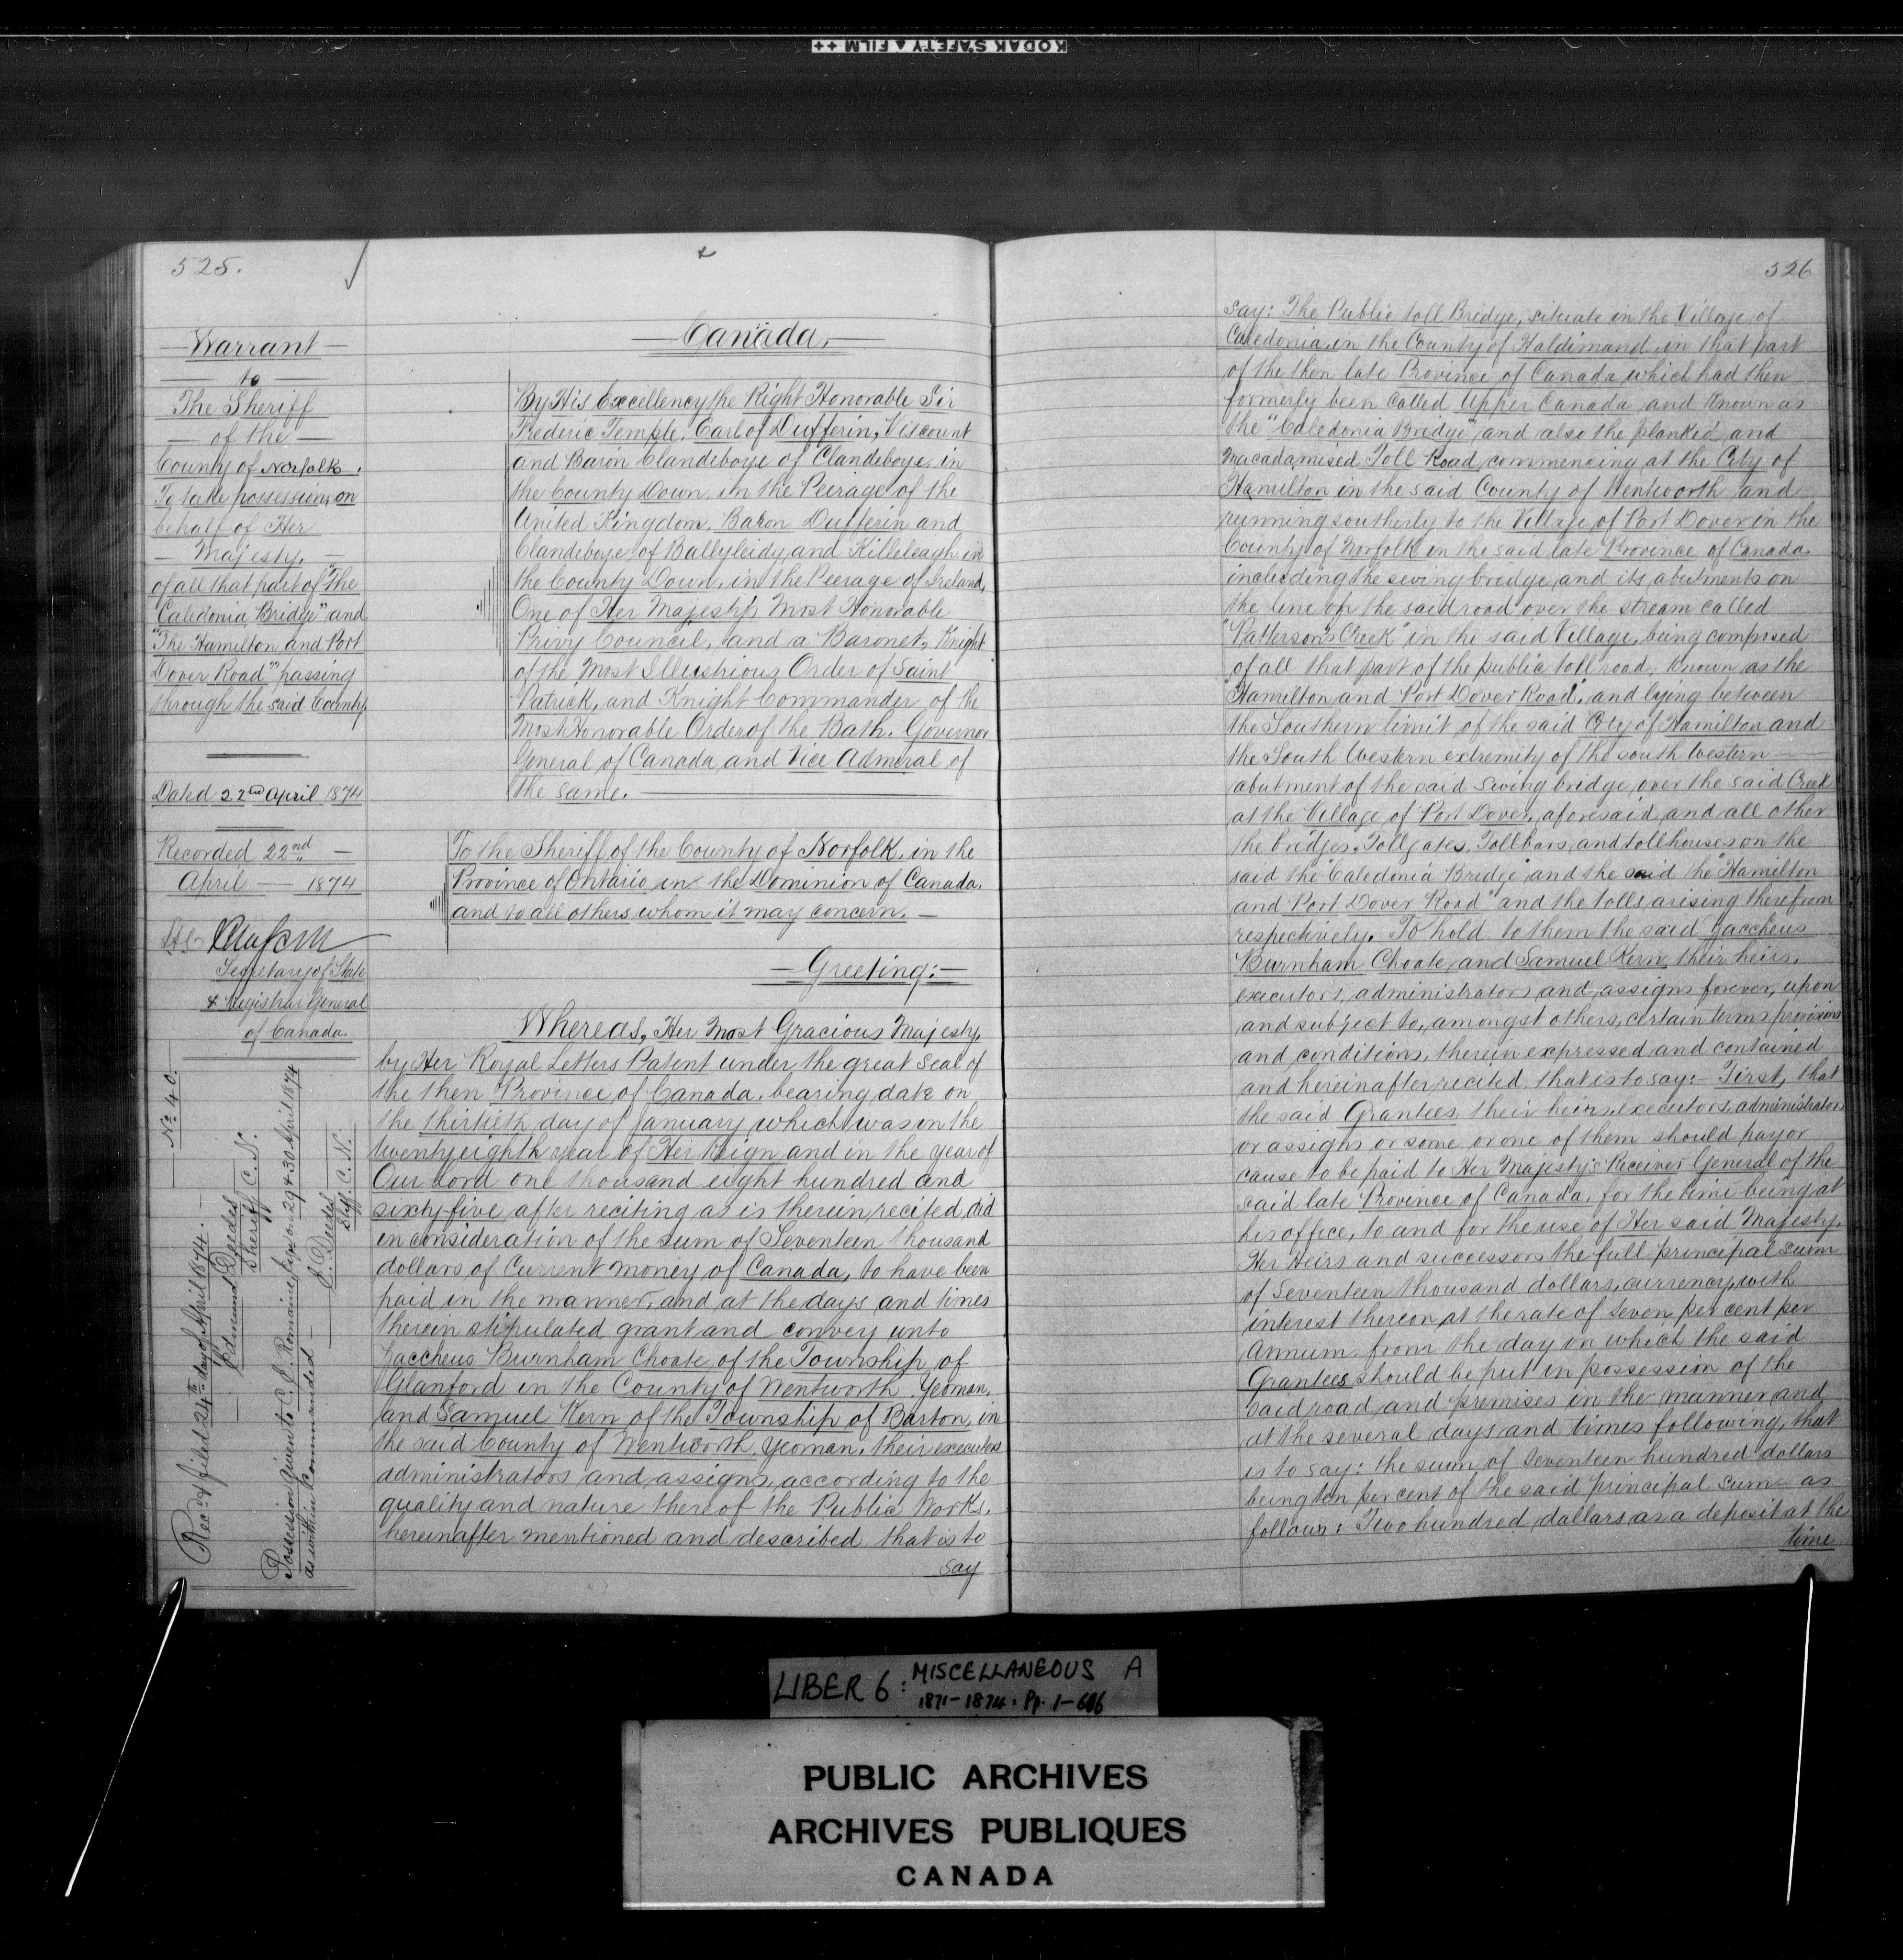 KODAK SAFETY FILM ++
525.
Warrant
to
The Sheriff
of the
County of Norfolk.
To take possession, on
behalf of Her
Majesty,
of all that part of "The
Caledonia Bridge" and
"The Hamilton and Port
Dover Road" passing
through the said County
Dated 22nd April 1874
Recorded 22nd
April 1874
Secretary of State
& Registrar General
of Canada.
No. 40.
Recd & filed 24th day of April 1874.
Edmund Deedes
Sheriff C. N.
Possession given to C. E. Romaine Esqr on 29 & 30 April 1874
as within commanded
E. Deedes
Shff. C. N.
Canada.
By His Excellency the Right Honorable Sir
Frederic Temple, Earl of Dufferin, Viscount
and Baron Clandeboye of Clandeboye, in
the County Down, in the Peerage of the
United Kingdom, Baron Dufferin and
Clandeboye of Ballyleidy and Killeleagh in
the County Down, in the Peerage of Ireland,
One of Her Majesty's Most Honorable
Privy Council, and a Baronet, Knight
of the Most Illustrious Order of Saint
Patrick, and Knight Commander of the
Most Honorable Order of the Bath. Governor
General of Canada and Vice Admiral of
the same.
To the Sheriff of the County of Norfolk, in the
Province of Ontario in the Dominion of Canada,
and to all others whom it may concern.
Greeting:
Whereas, Her Most Gracious Majesty,
by Her Royal Letters Patent under the great Seal of
the then Province of Canada, bearing date on
the thirtieth day of January which was in the
twenty eighth year of Her Reign and in the year of
Our Lord one thousand eight hundred and
sixty-five after reciting as is therein recited, did
in consideration of the sum of Seventeen thousand
dollars of Current money of Canada, to have been
paid in the manner, and at the days and times
therein stipulated grant and convey unto
Zaccheus Burnham Choate of the Township of
Glanford in the County of Wentworth, Yeoman,
and Samuel Kern of the Township of Barton, in
the said County of Wentworth, Yeoman, their executors
administrators and assigns, according to the
quality and nature thereof the Public Works,
hereinafter mentioned and described that is to
say
526
say: The Public toll Bridge, situate in the Village of
Caledonia, in the County of Haldimand in that part
of the then late Province of Canada which had then
formerly been called Upper Canada and known as
the "Caledonia Bridge" and also the planked and
macadamised Toll Road, commencing at the City of
Hamilton in the said County of Wentworth and
running southerly to the Village of Port Dover in the
County of Norfolk in the said late Province of Canada
including the swing bridge and its abutments on
the line of the said road over the stream called
"Patterson's Creek" in the said Village, being comprised
of all that part of the public toll road, known as the
"Hamilton and Port Dover Road", and lying between
the Southern limit of the said City of Hamilton and
the South Western extremity of the south Western
abutment of the said swing bridge, over the said Creek
at the Village of Port Dover, aforesaid, and all other
the bridges, Tollgates, Tollbars, and tollhouses on the
said the "Caledonia Bridge" and the said the "Hamilton
and Port Dover Road" and the tolls arising therefrom
respectively. To hold to them the said Zaccheus
Burnham Choate, and Samuel Kern, their heirs,
executors, administrators and assigns forever, upon
and subject to, amongst others, certain terms provisions
and conditions, therein expressed and contained
and hereinafter recited, that is to say: First, that
the said Grantees their heirs, executors, administrators
or assigns or some or one of them should pay or
cause to be paid to Her Majesty's Receiver General of the
said late Province of Canada, for the time being at
his office, to and for the use of Her said Majesty,
Her Heirs and successors the full principal sum
of Seventeen thousand dollars, currency, with
interest thereon at the rate of seven per cent per
annum from the day on which the said
Grantees should be put in possession of the
said road and premises in the manner and
at the several days and times following, that
is to say: the sum of Seventeen hundred dollars
being ten per cent of the said principal sum as
follows: Two hundred dollars as a deposit at the
time
LIBER 6: MISCELLANEOUS A
1871-1874: Pp. 1-606
PUBLIC ARCHIVES
ARCHIVES PUBLIQUES
CANADA